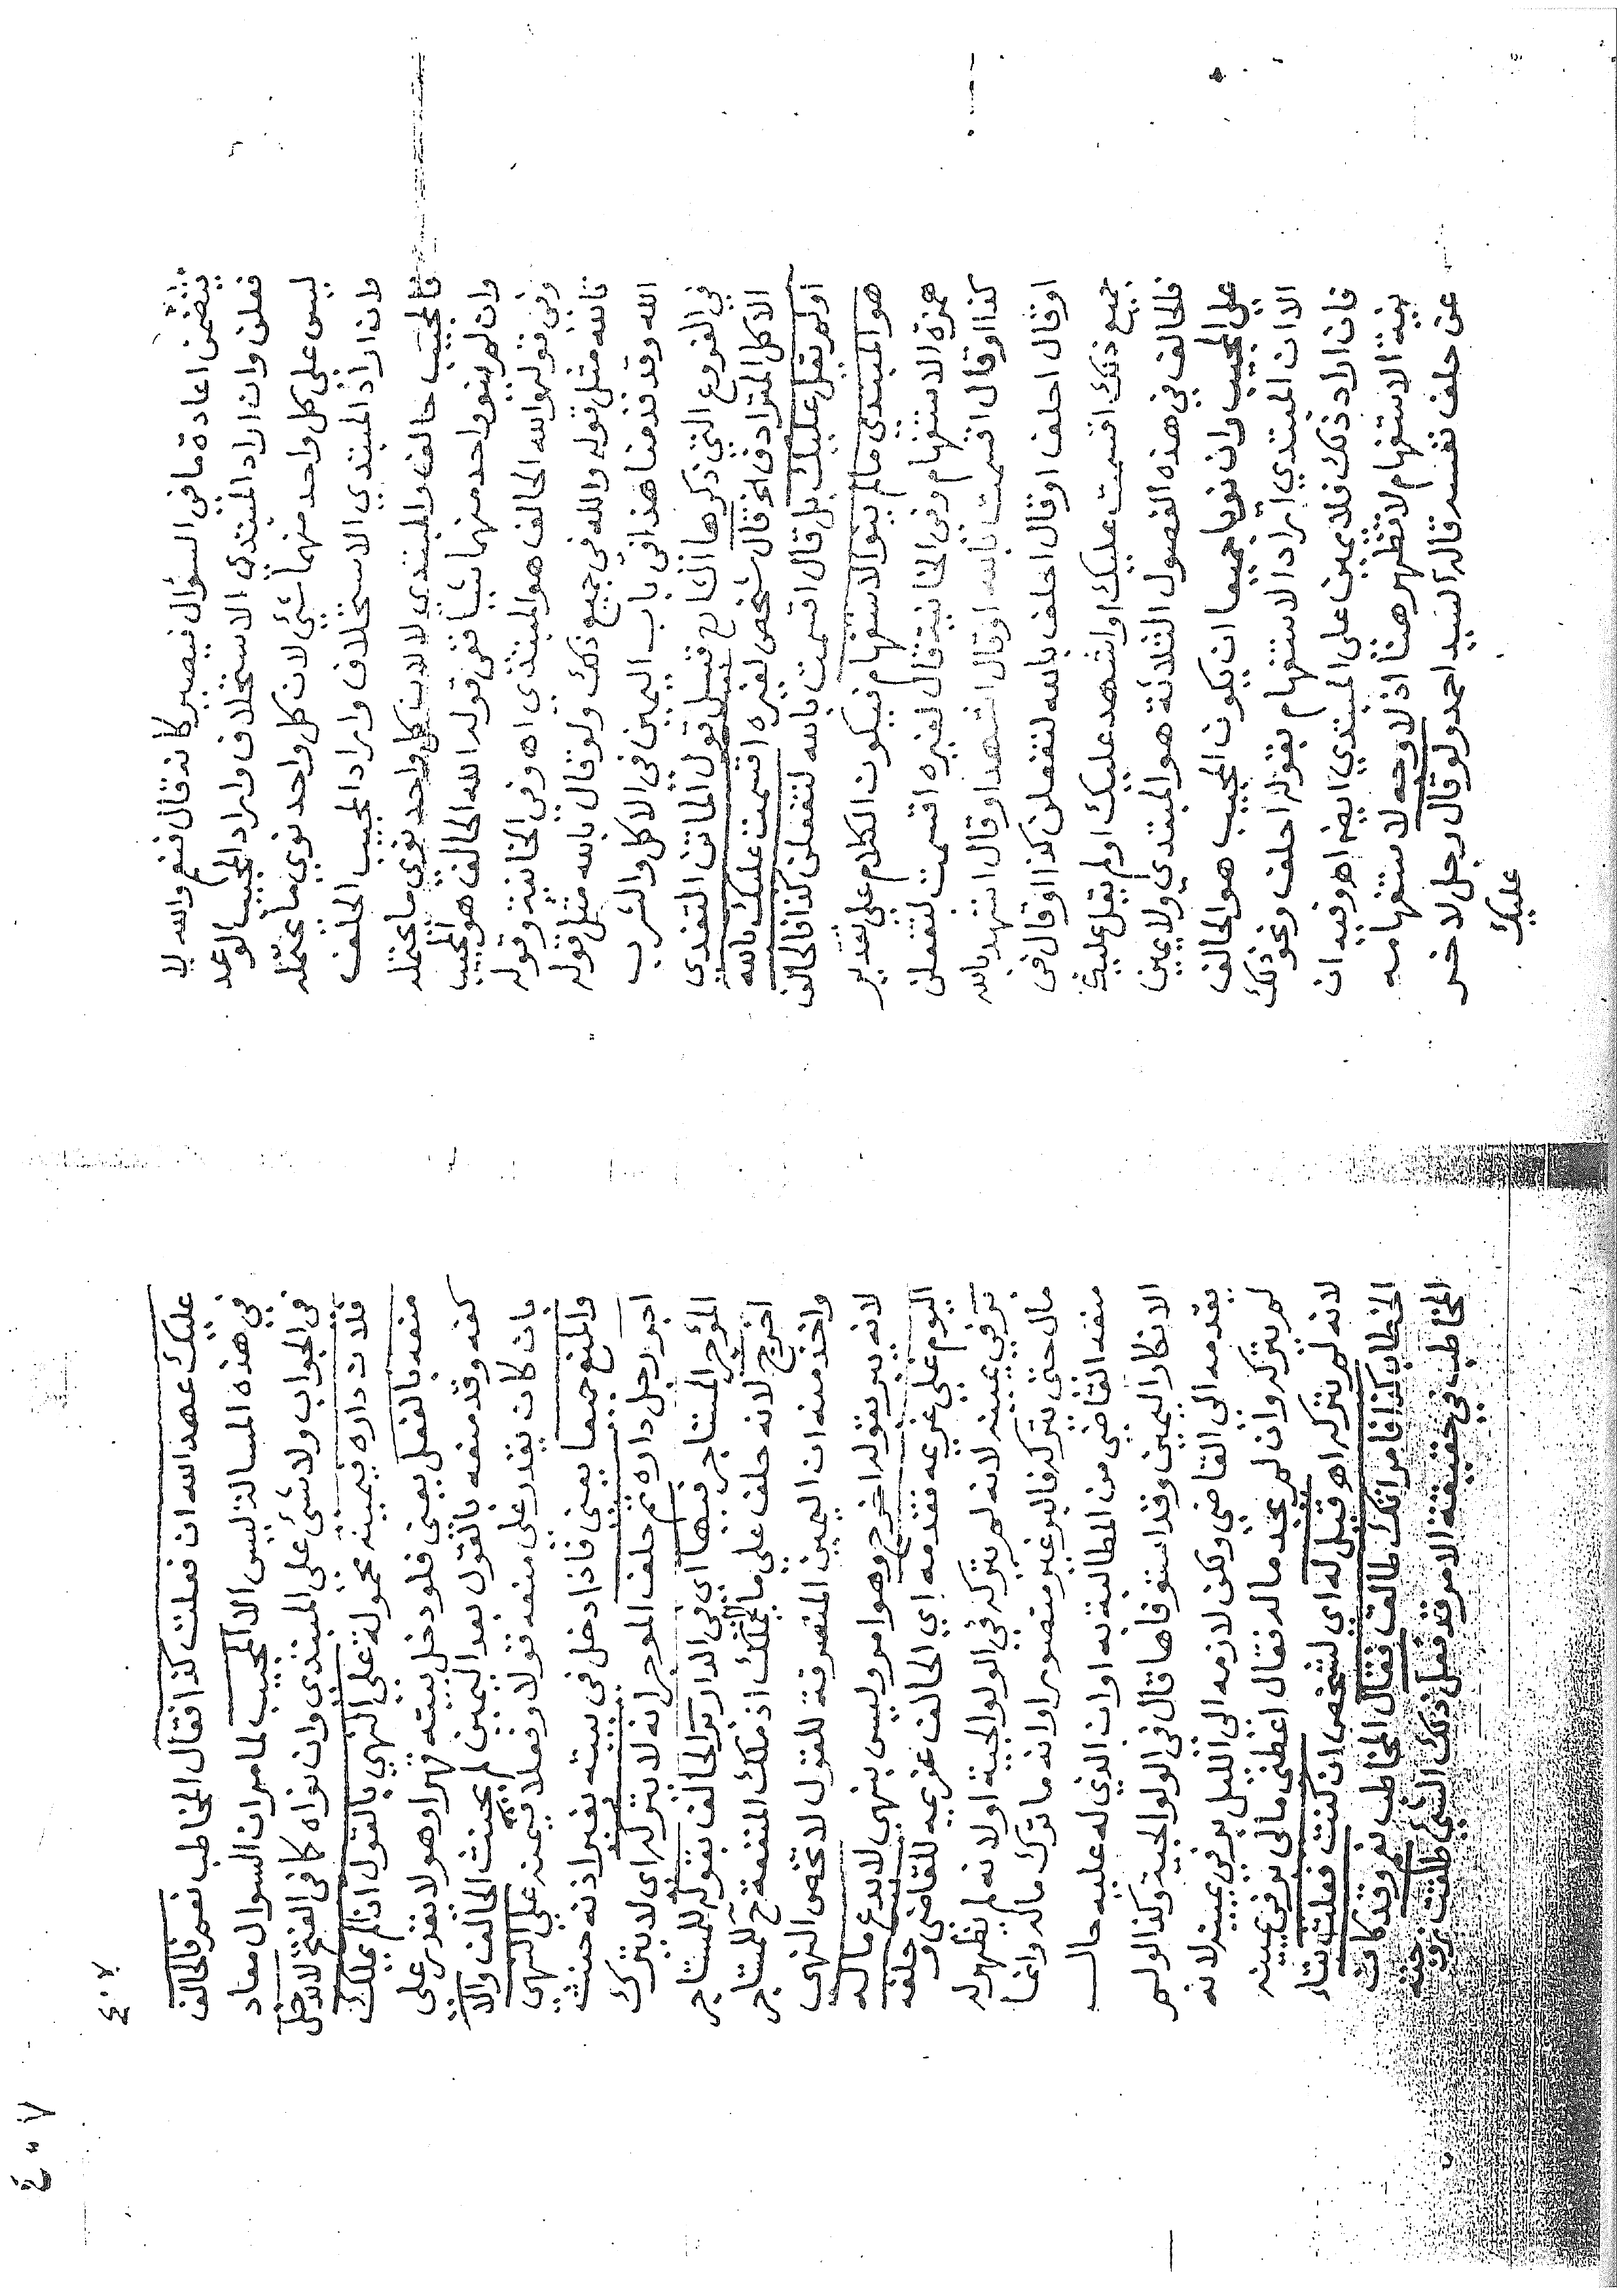 يتضمن اعادة ما في السؤال فيصير كانه قال نعم والله لا
فعلن وان اراد المبتدي الاستحلاف واراد المجيب الوعد
ليس على كل واحد منهما شيئ لان كل واحد نوى ما يحتمله
وان اراد المبتدي الاستحلاف واراد المجيب الحلف
فالمجيب حالف والمبتدي لا لان كل واحد نوى ما يحتمله
وان لم ينو واحد منهما شيا ففي قوله الله الحالف هو المجيب
وفي قوله والله الحالف هو المبتدي اه وفي الخانية وقوله
تالله مثل قوله والله في جميع ذلك ولو قال بالله مثل قوله
الله وقد قدمنا هذا في باب اليمين في الاكل والشرب
في الفروع التي ذكرها الشارح قبيل قول الماتن التغدي
الاكل المترادف اخ قال شخص لغيره اقسمت عليك بالله
اولم يقل عليك بل قال اقسمت بالله لتفعلن كذا فالحالف
هو المبتدي مالم ينو الاستفهام فيكون الكلام على تقدير
همزة الاستفهام وفى الخانية قال لغيره اقسمت لتفعلن
كذا او قال اقسمت بالله او قال اشهد او قال اشهد بالله
او قال احلف او قال احلف بالله لتفعلن كذا او قال فى
جميع ذلك اقسمت عليك او اشهد عليك او لم يقل عليك
فالحالف في هذه الفصول الثلاثة هو المبتدي ولا يمين
على المجيب وان نويا جميعا ان يكون المجيب هو الحالف
الا ان المبتدي اراد الاستفهام بقوله احلف ونحو ذلك
فان اراد ذلك فلا يمين على المبتدي ايضه اه وفيه ان
نية الاستفهام لا تظهر هنا اذ لا وجه لاستفهامه
عن حلف نفسه قاله السيد احمد ولو قال رجل لاخر
عليك
٤٠٧
٤٠٧
عليك عهد الله ان فعلت كذا فقال المخاطب نعم فالحالف
في هذه المسالة ليس الا المجيب لما مر ان السوال معاد
فى الجواب ولا شئ على المبتدى وان نواه كافى الفتح لا يدخل
فلان داره فيمينه محمولة على النهي بالقول اذا لم يملك
منعه بالفعل يعني فلو دخل بيته قهرا وهو لا يقدر على
كفه وقد منعه بالقول بعد اليمين لم يحنث الحالف والا
بان كان يقدر على منعه قولا وفعلا فيمينه على النهي
والمنع جميعا يعني فاذا دخل في بيته بغير اذنه حنث
اجر رجل داره ثم حلف الموجر انه لا يتركه اى لا يترك
المؤجر المستاجر فيها اي في الدار بر الحالف بقوله للمستاجر
اخرج لانه حلف على ما يملك اذ ملك المنفعة ح للمستاجر
واخذ منه ان اليمين المتفرقة للقول لا تخص النهى
لانه ير بقوله اخرج وهو امر وليس بنهى لا يدع ماله
اليوم على غريمه فقدمه اي الحالف غريمه للقاضى وحلفه
بر في يمينه لانه لم يتركه في الولوالجية اولانه لم يظهر له
مال حتى يتركه فالبر غير متصور اوانه ما ترك ماله وانما
منعه القاضي من المطالبة به اوان الذي له عليه حال
الانكار اليمين وقد استوفاها قال فى الولوالجية وكذا لو لم
يقدمه الى القاضي ولكن لازمه الى الليل بر في يمينه لانه
لم يتركه وان لم يجد ماله فقال اعطني مالى بر في يمينه
لانه لم يتركه اه قيل له اي لشخص ان كنت فعلت
الخطاب كذا فامراتك طالق فقال المخاطب نعم وقد كان
المخاطب في حقيقة الامر قد فعل ذلك الشئ طلقت